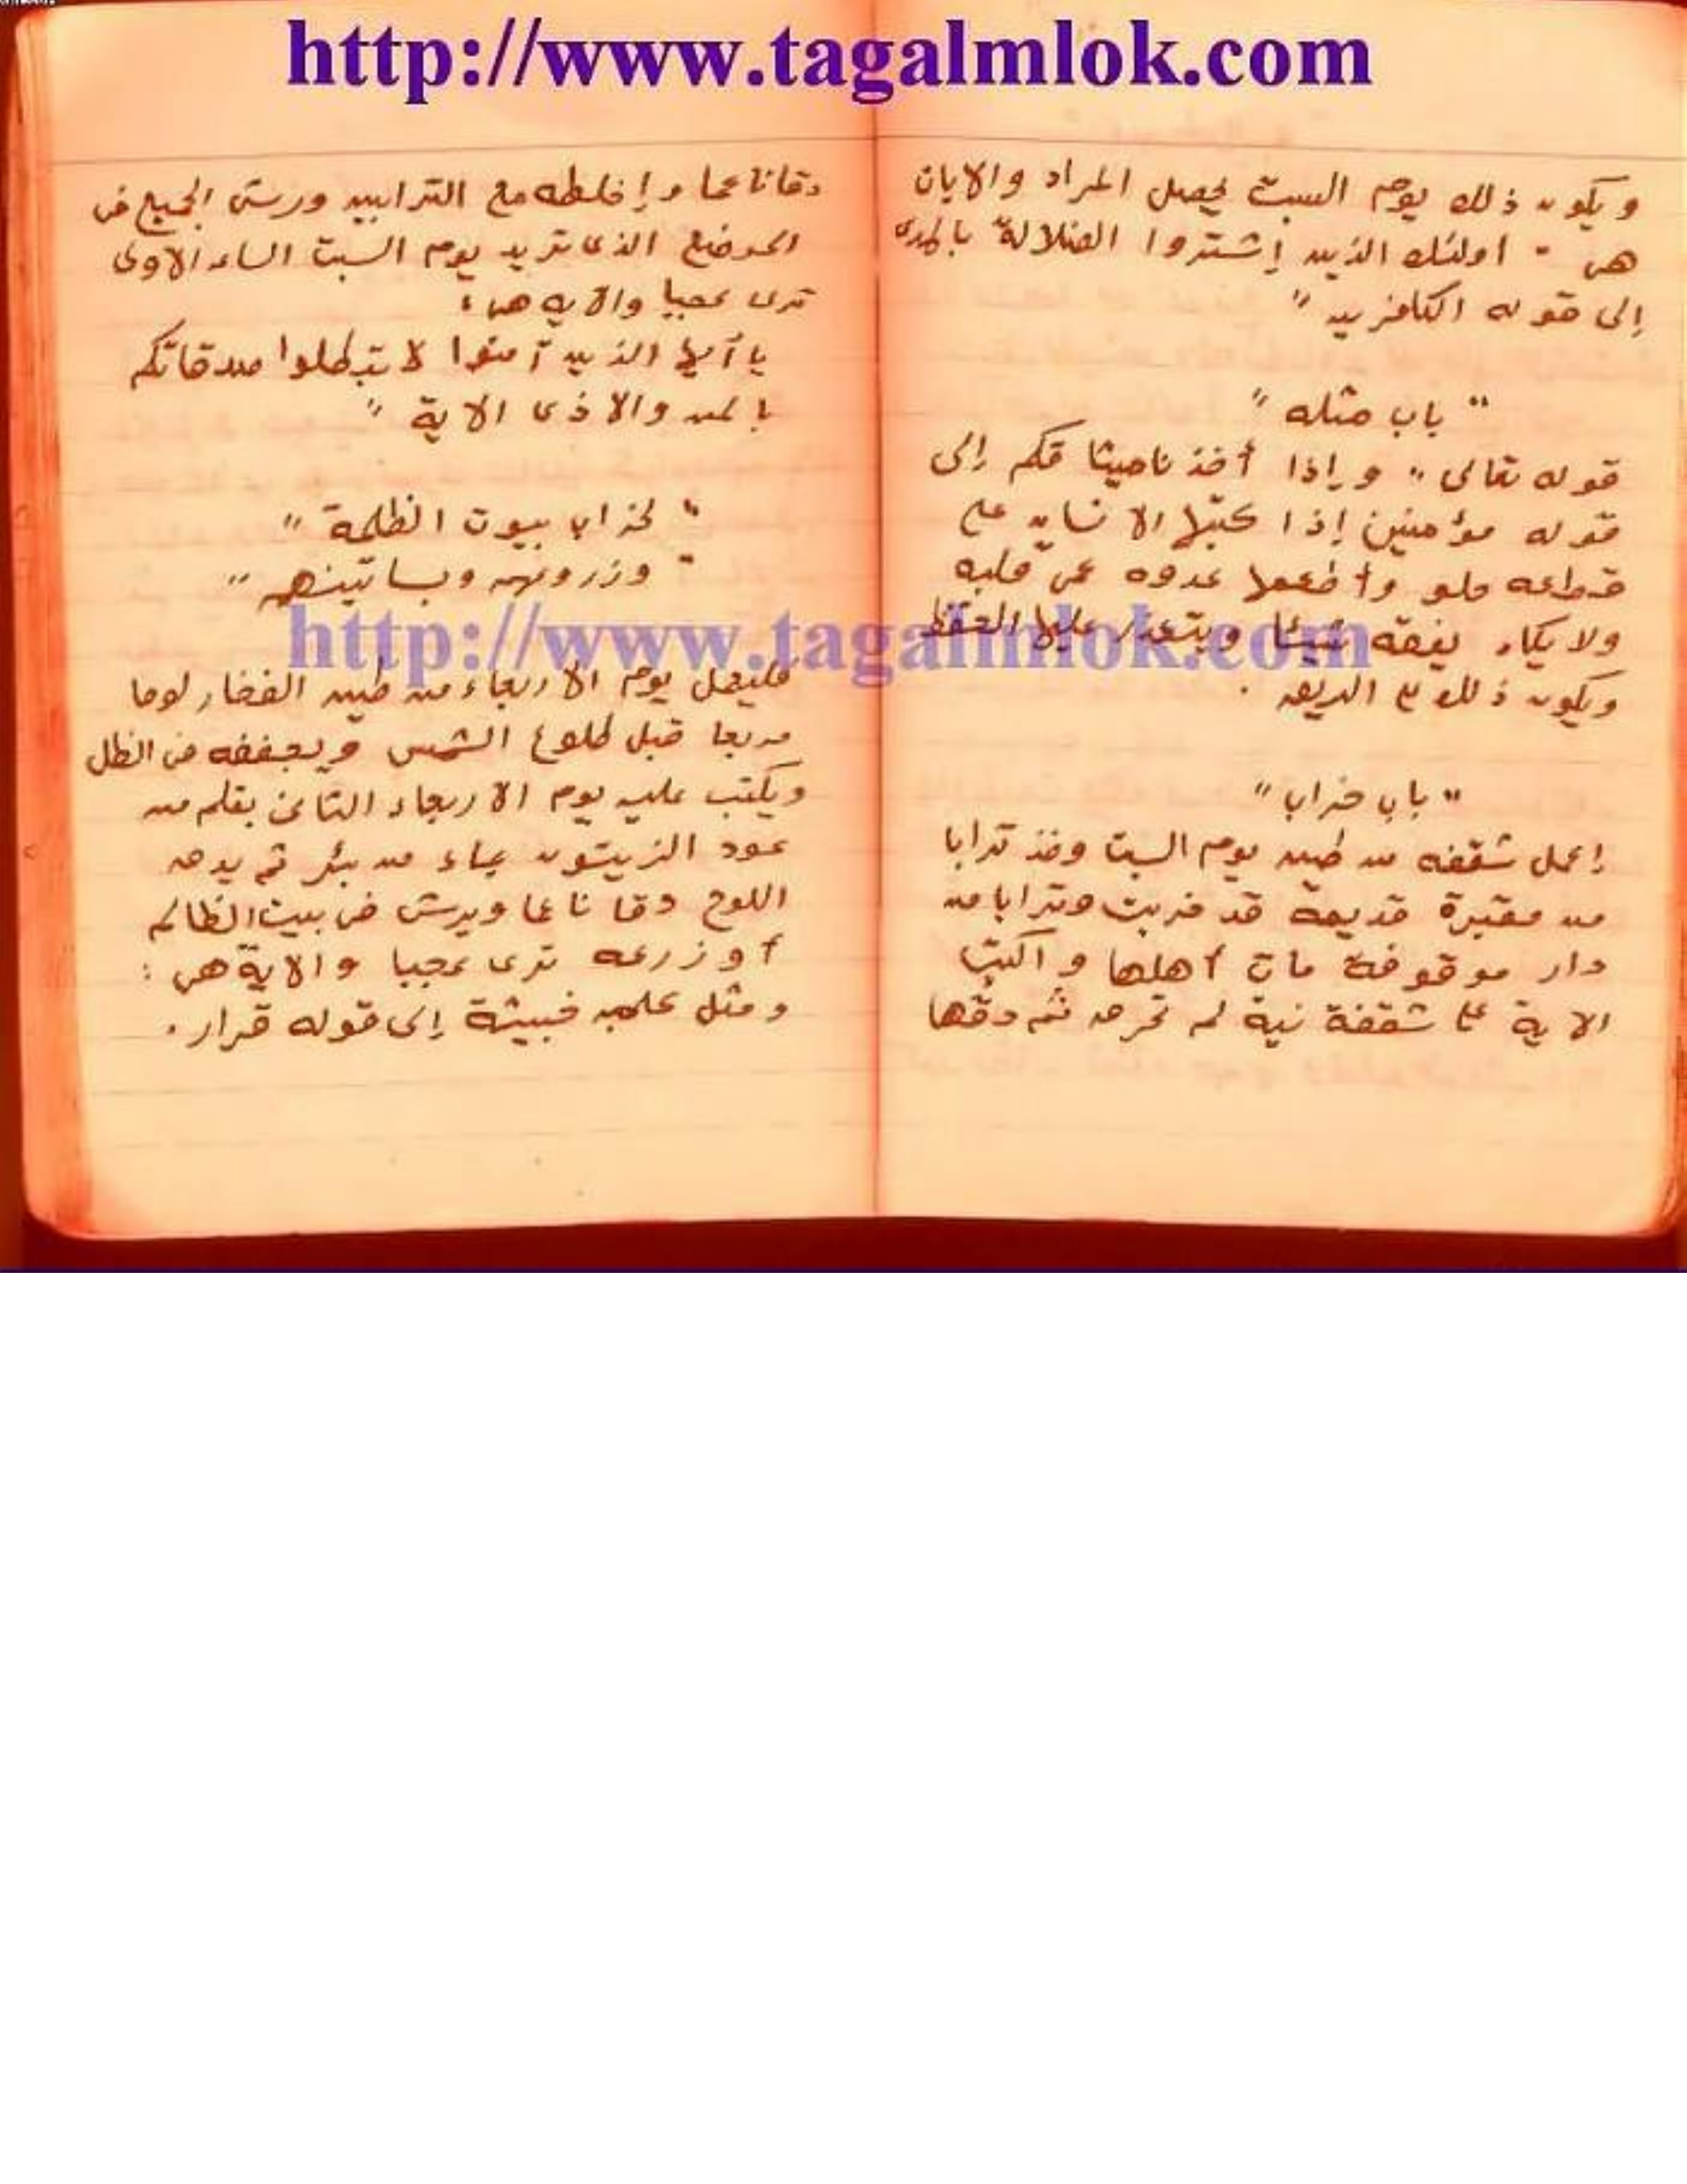 http://www.tagalmlok.com
ويكون ذلك يوم السبت يحصل المراد والايات
هى " اولئك الذين إشتروا الضلالة بالهدى
إلى قوله الكافرين "
" باب مثله "
قوله تعالى " وإذا أخذنا ميثاقكم إلى
قوله مؤمنين إذا كتبها الانسان على
وأطعمها عدوه عمى قلبه
ولا يكاد يفقه شيئا ويتعذر عليها الحفظ
ويكون ذلك
" باب خراب "
إعمل شقفه من طين يوم السبت وخذ ترابا
من مقبرة قديمة قد خربت وترابا من
دار موقوفة مات أهلها واكتب
الاية على شقفة نية لم تحرق ثم دقها
دقا ناعما وإخلطه مع الترابين ورش الجميع فى
الموضع الذى تريد يوم السبت الساعه الاولى
ترى عجبا والايه هى :
يا أيها الذين آمنوا لا تبطلوا صدقاتكم
بالمن والاذى الاية "
" لخراب بيوت الظلمة "
" وزروعهم وبساتينهم "
http://www.tagalmlok.com
فليعمل يوم الاربعاء من طين الفخار لوحا
مربعا قبل طلوع الشمس ويجففه فى الظل
ويكتب عليه يوم الاربعاء الثانى بقلم من
عود الزيتون بماء من بئر ثم يدق
اللوح دقا ناعما ويرش فى بيت الظالم
أو زرعه ترى عجبا والاية هى :
ومثل كلمة خبيثة إلى قوله قرار .